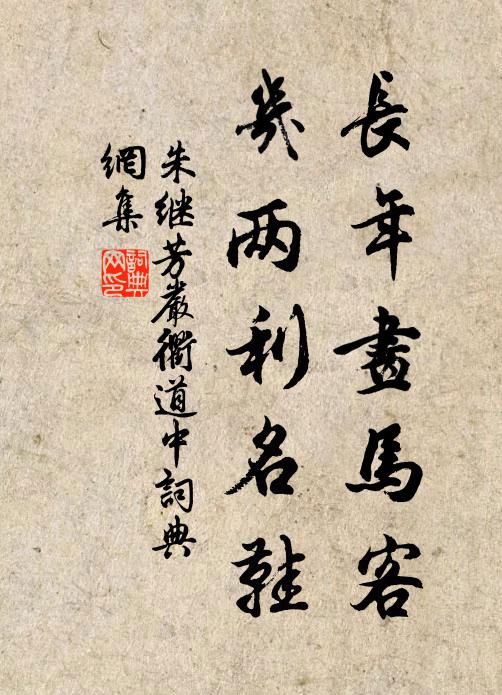 長年畫馬客
幾两利名鞋
朱继芳嚴衢道中詞典
網集
詞典網印